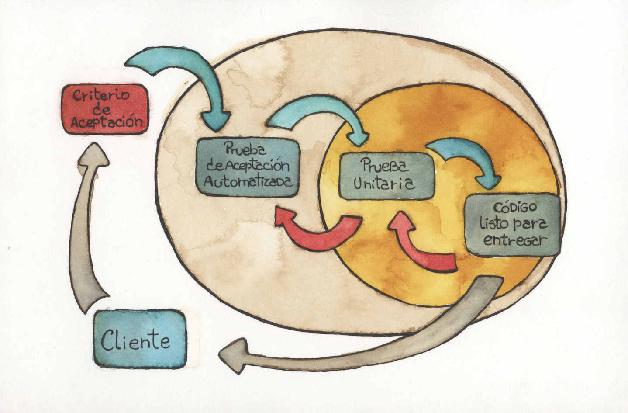 Criterio
de
Aceptación
Prueba
de Aceptación
Automatizada
Prueba
Unitaria
Código
listo para
entregar
Cliente